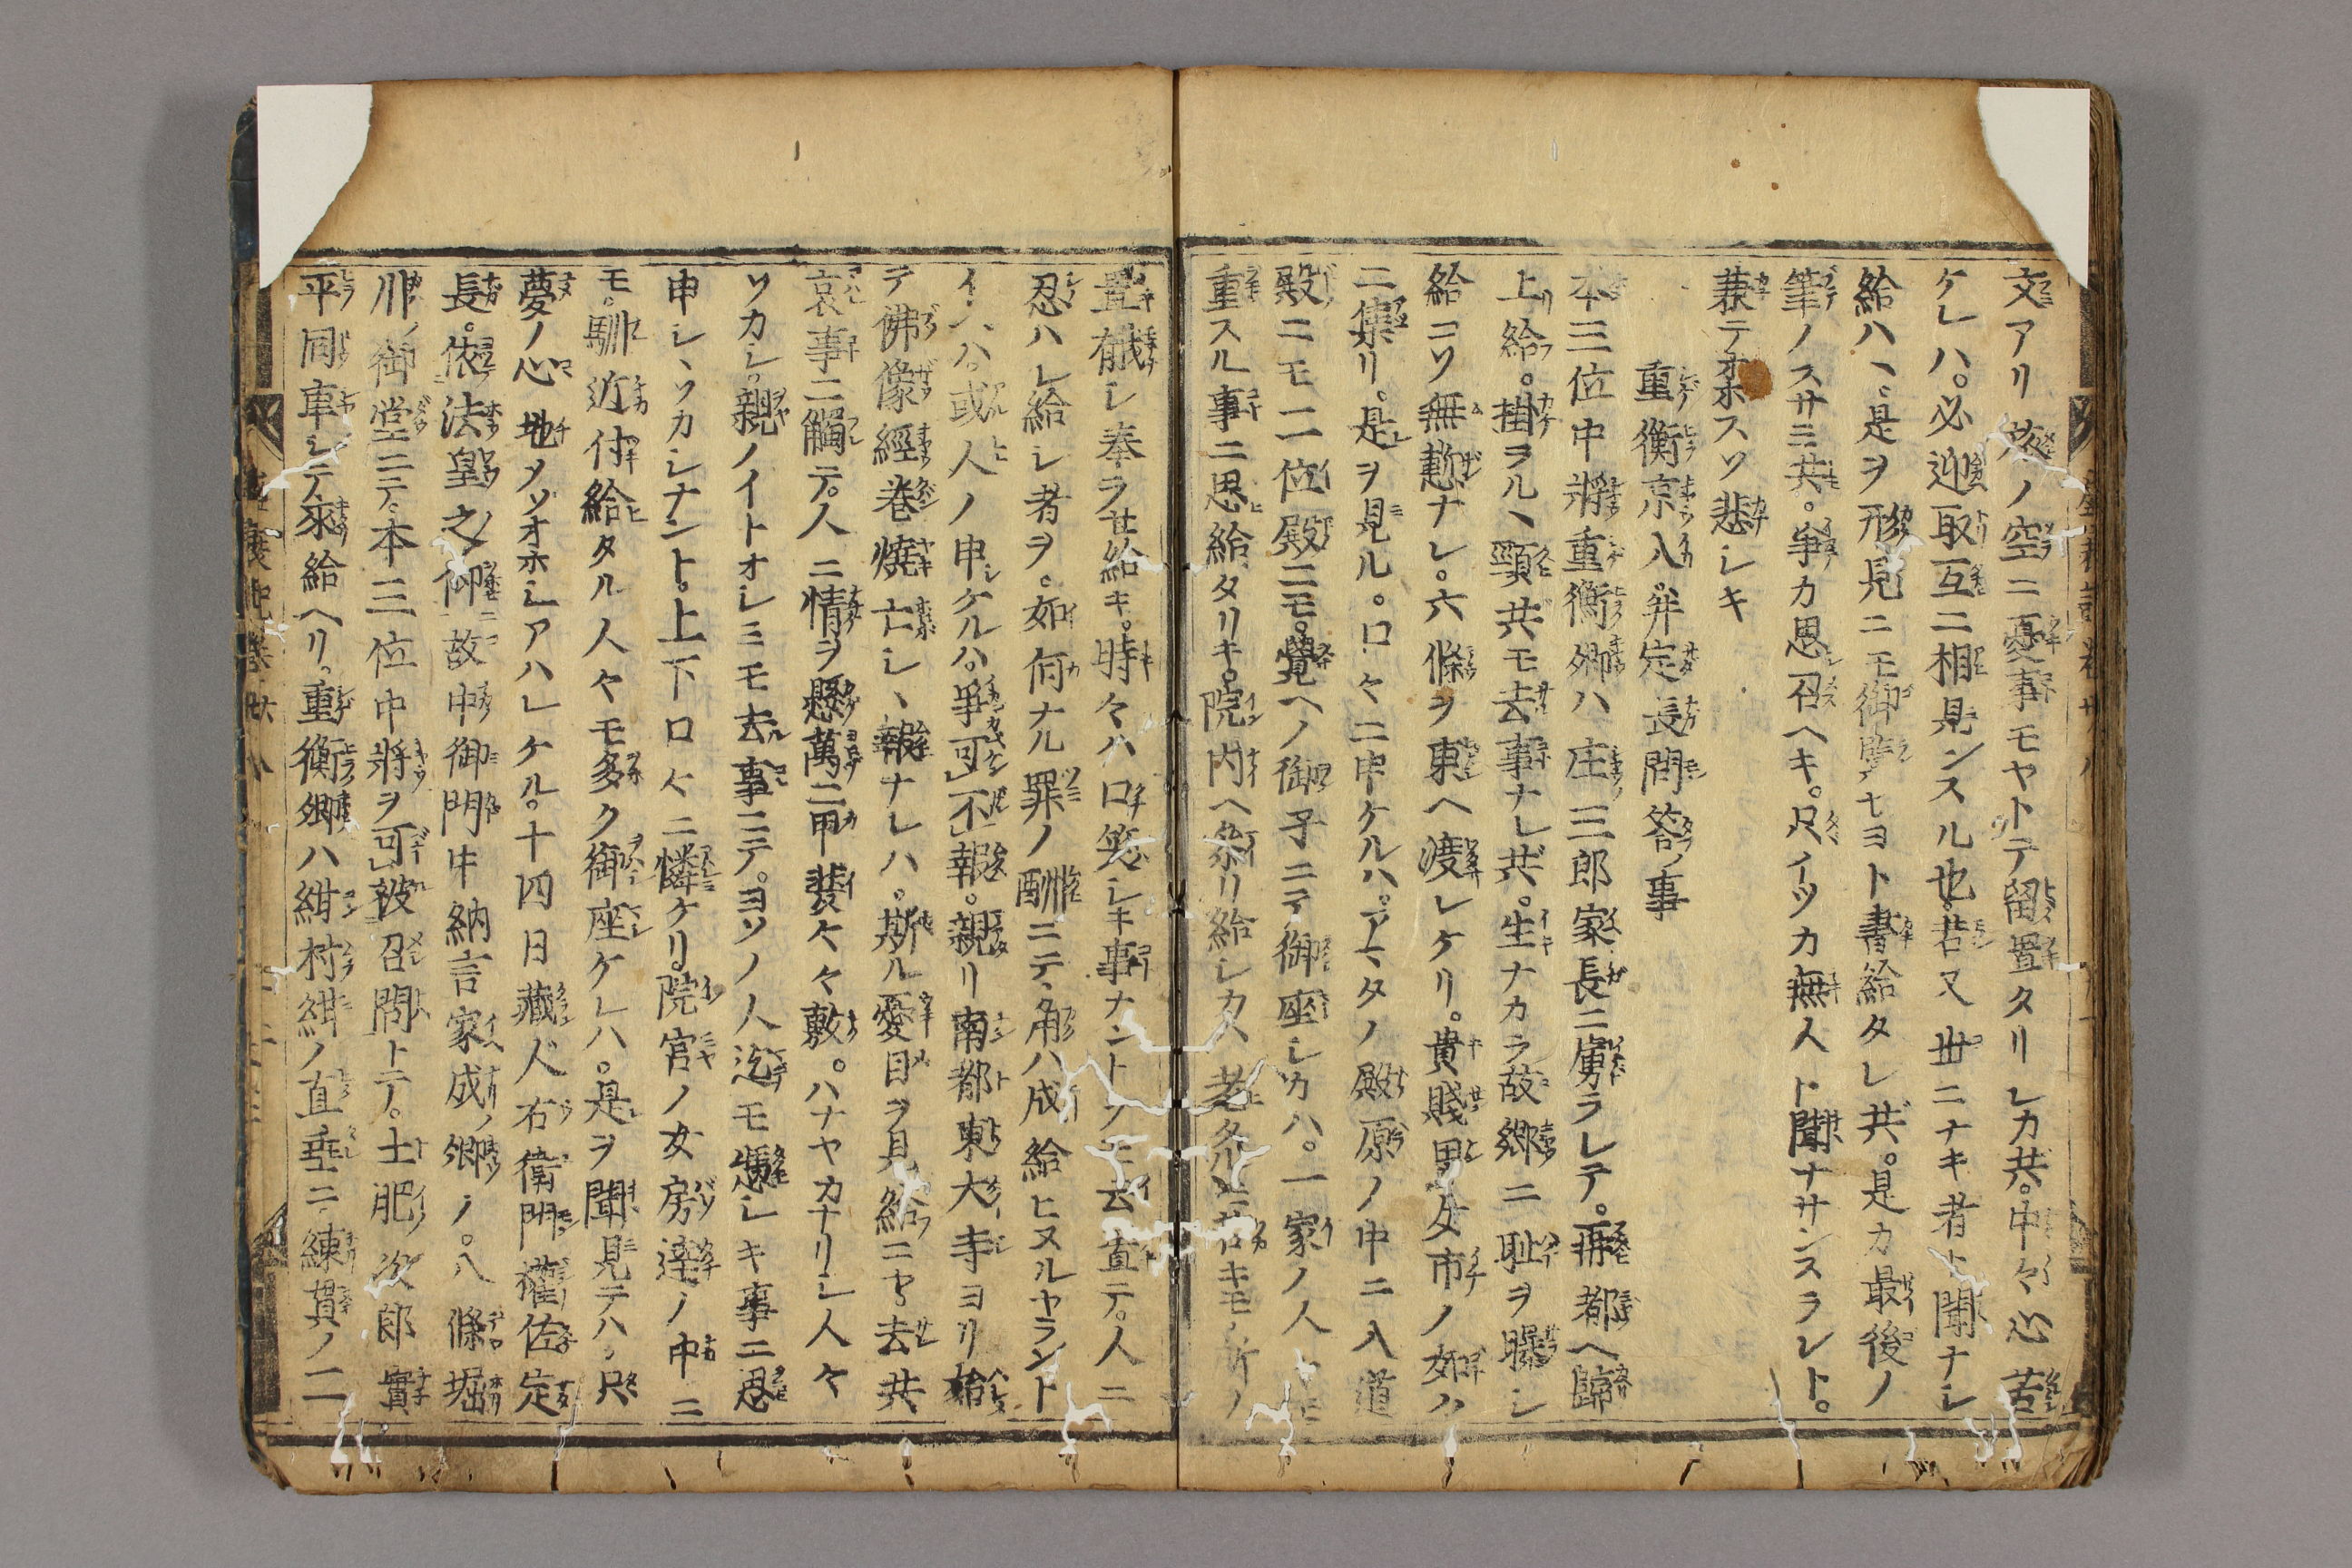 文アリ。旅ノ空ニ憂事モヤトテ留置タリレカ共。中々心苦
ケレハ。必迎取互ニ相見ンスル也。若又世ニナキ者ト聞ナシ
給ハヽ。是ヲ形見ニモ御覧セヨト書給タレ共。是カ最後ノ
筆ノスサミ共。争カ思召ヘキ。只イツカ無人ト聞ナサンスラント。
兼テオホスソ悲シキ
重衡京入。并定長問答ノ事
本三位中將重衡卿ハ庄三郎家長ニ虜ラレテ。再都ヘ歸
上給。掛ヲルヽ頸共モ去事ナレ共。生ナカラ故郷ニ耻ヲ曝シ
給コソ無慙ナレ。六條ヲ東ヘ渡レケリ。貴賤男女市ノ如ハ
ニ集リ。是ヲ見ル。口々ニ申ケルハ。アヽタノ殿原ノ中ニ入道
殿ニモ二位殿ニモ。覺ヘノ御子ニテ御座シカハ。一家ノ人々モ
重スル事ニ思給タリキ。院内ヘ參リ給シカハ老タルモ若キモ所ノ
置献シ奉ラせ給キ。時々ハ口笑シキ事ナントノモ云置テ。人ニ
忍ハレ給シ者ヲ。如何ナル罪ノ酬ニテ、角ハ成給ヒヌルヤラント
イヽハ。或人ノ申ケルハ。爭可不報。親リ南都東大寺ヨリ始
テ佛像經巻焼亡シヽ報ナレハ。斯ル憂目ヲ見給ニヤ。去共
哀事ニ觸テ。人ニ情ヲ懸萬ニ甲斐々々敷。ハナヤカナリシ人々
ソカシ。親ノイトオシミモ去事ニテ。ヨソノ人迄モ憑シキ事ニ思
申シヽソカシナント。上下口々ニ憐ケリ。院宮ノ女房達ノ中ニ
モ。馴近付給タル人々モ多ク御座ケレハ。是ヲ聞見テハ。只
夢ノ心地ノソオホシアハレケル。十四日藏人右衛門權佐定
長。依法皇之仰。故中御門中納言家成ノ卿ノ。八條堀
川ノ御堂ニテ。本三位中將ヲ可被召問トテ。土肥次郎實
平同車シテ來給ヘリ。重衡卿ハ紺村紺ノ直垂ニ練貫ノ二